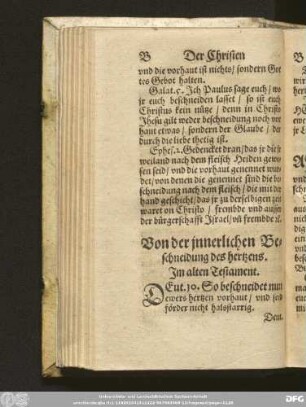 B Der Christen
vnd die vorhaut ist nichts/ sondern Got
tes Gebot halten.
Galat. 5. Ich Paulus sage euch/ wo
jr euch beschneiden lasset/ so ist euch
Christus kein nütze/ denn in Christo
Jhesu gilt weder beschneidung noch vor
haut etwas/ sondern der Glaube/ da
durch die liebe thetig ist.
Ephes. 2. Gedencket dran/ das jr die jr
weiland nach dem fleisch Heiden gewe
sen seid/ vnd die vorhaut genennet wur
det/ von denen die genennet sind die be
schneidung nach dem fleisch/ die mit der
hand geschicht/ das jr zu derselbigen zeit
waret on Christo/ frembde vnd ausser
der bürgerschafft Israel/ vñ frembde ꝛc.
Von der jnnerlichen Be-
schneidung des hertzens.
Im alten Testament.
DEut. 10. So beschneidet nun
ewers hertzen vorhaut/ vnd seid
förder nicht halsstarrig.
Deut.